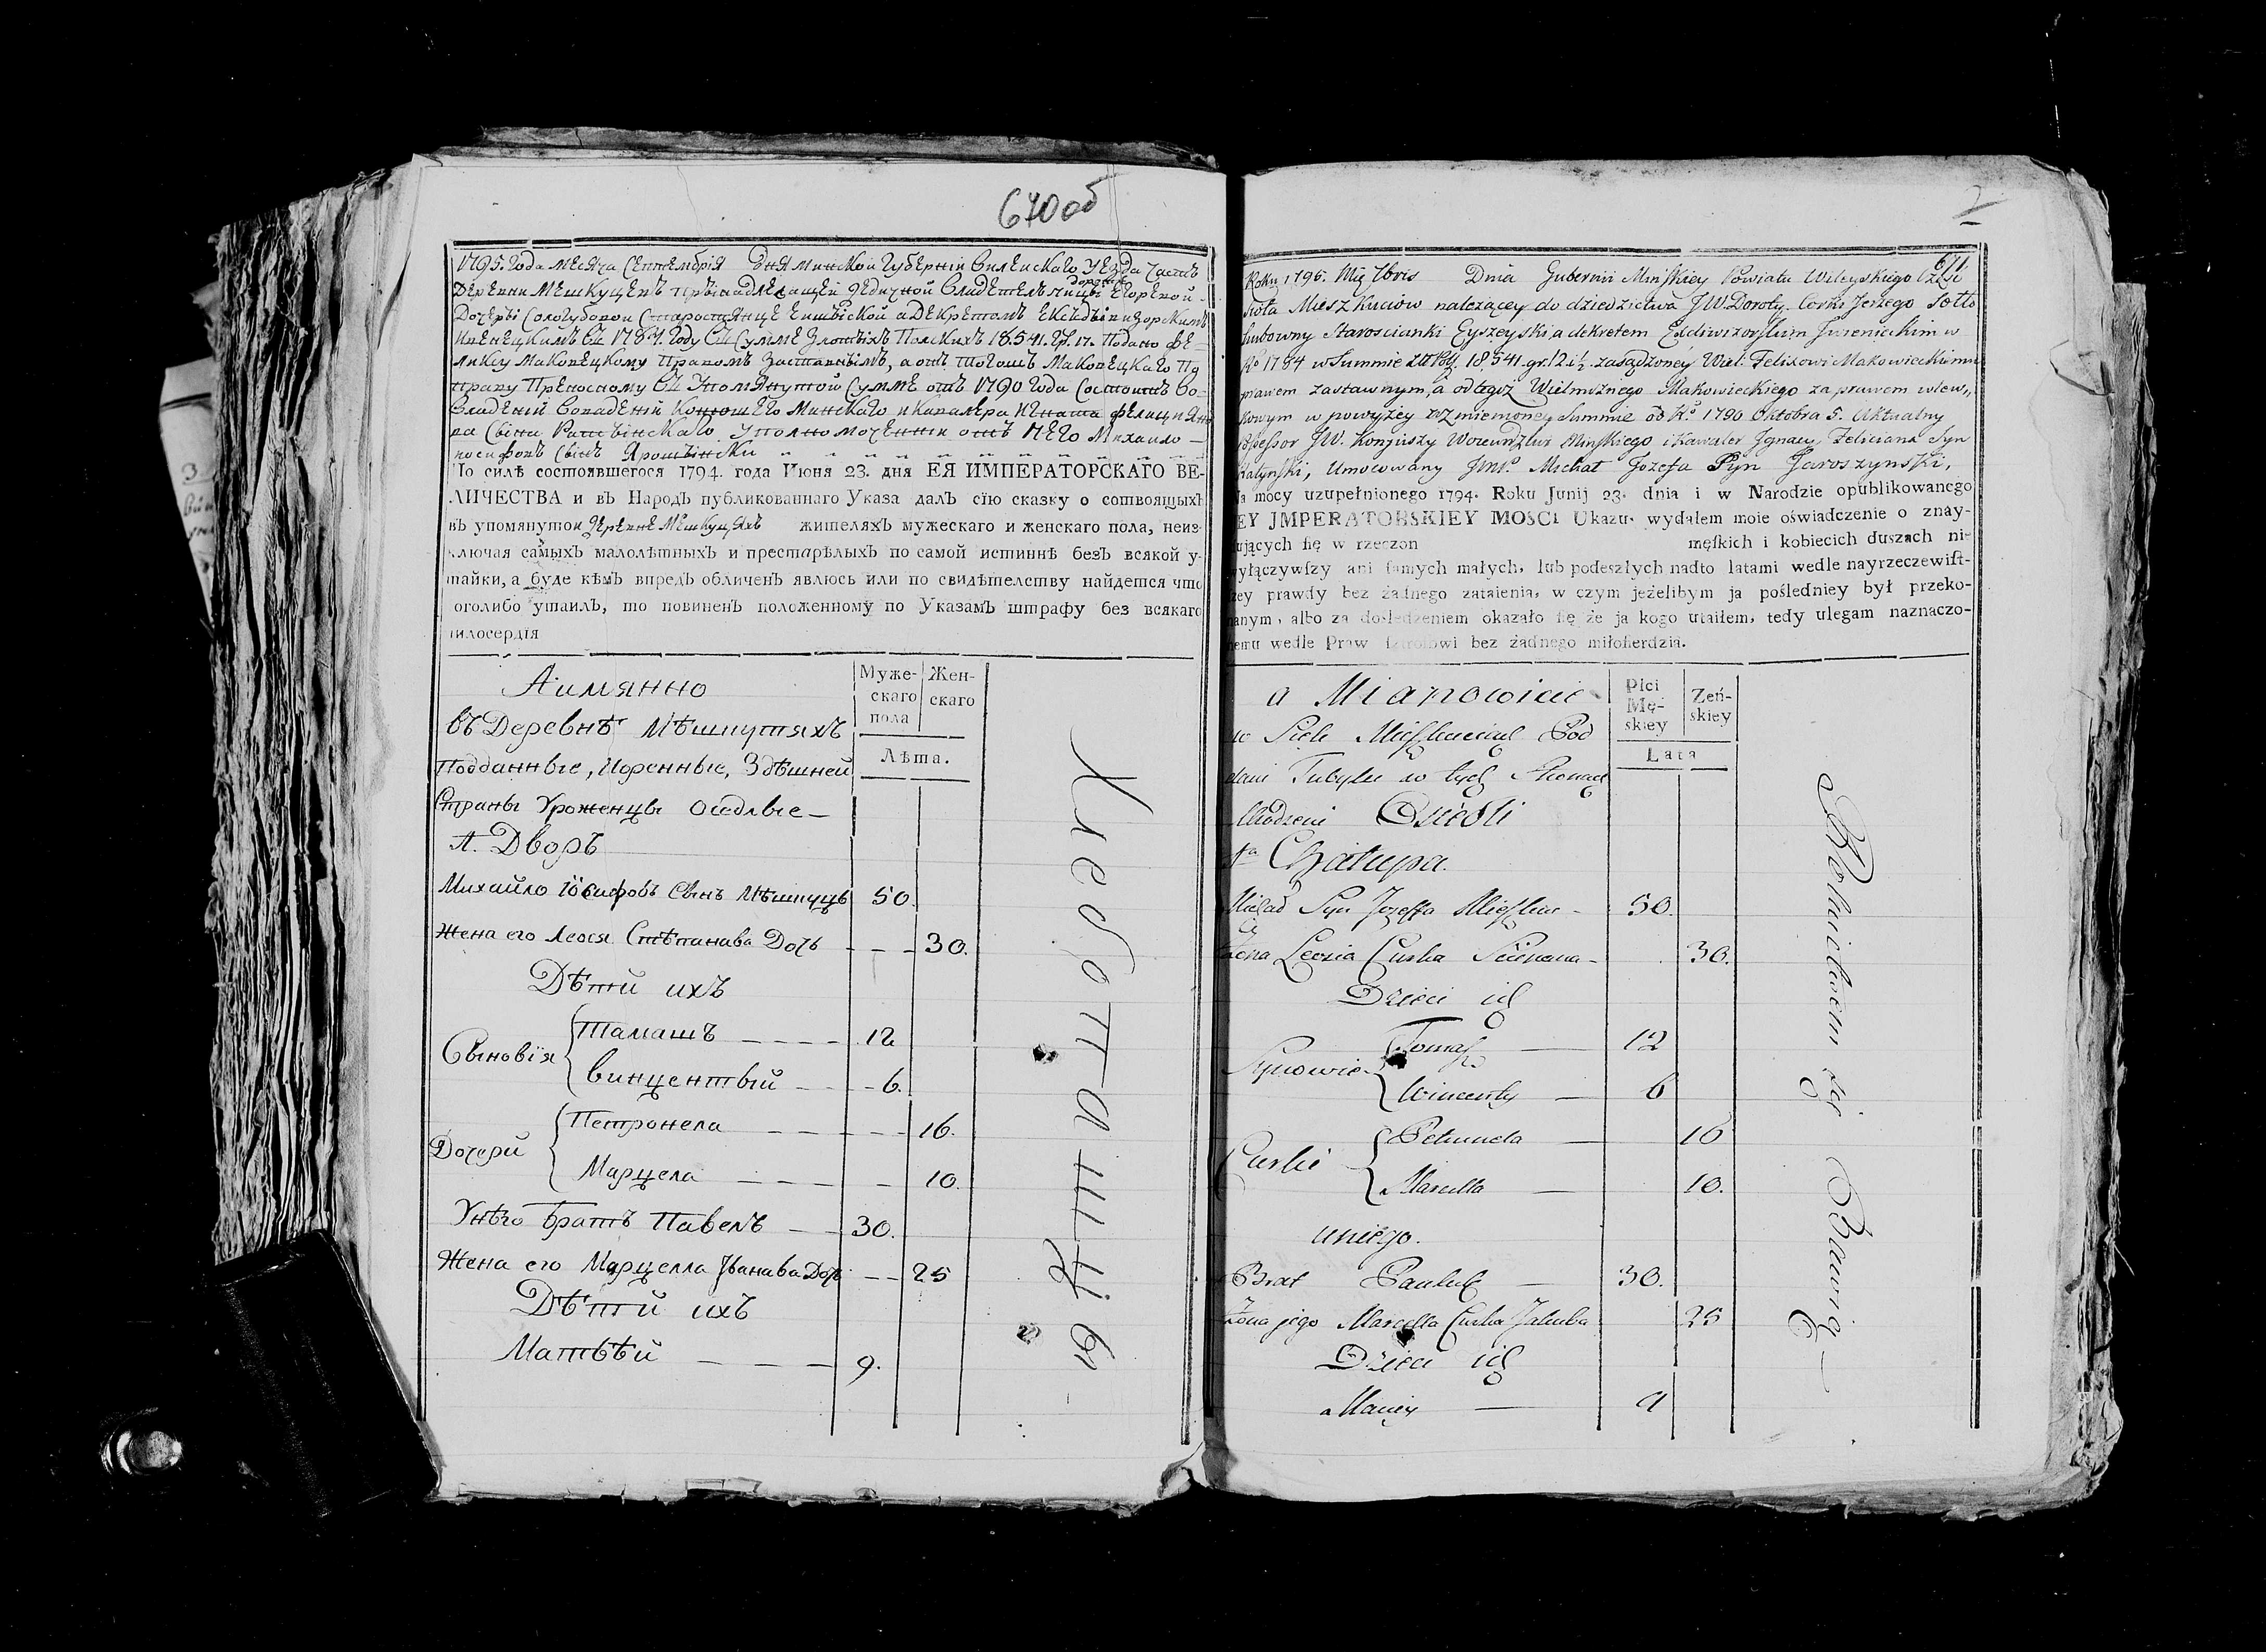 670 об
1795. года месяца Сентембрія дня минской губерніи вилейскаго уезда часть
дороте
деревни мешкуцевъ принадлежащей дедичной владетельницы Егоревой
дочери Сологубовой Старостянце Еишиской а декретомъ Ексдивизорскимъ
въ 1784. году въ сумме злотыхъ Польскихъ 18.541. гр. 12. Подано Фе-
ликсу маковецкому правомъ заставнымъ, а отъ тогошъ маковецкаго по
праву Преносному въ упомянутой сумме отъ 1790 года состоитъ во
владеніи Конюшего минскаго и кавалера игната фелициано
ва Сына уполномоченни отъ него михайло —
иосифовъ Сынъ Ярошынски
По силѣ состоявшегося 1794. года Июня 23. дня ЕЯ ИМПЕРАТОРСКАГО ВЕ-
ЛИЧЕСТВА и въ Народъ публикованнаго Указа далъ сїю сказку о сотвоящыхъ
въ упомянутои деревне мешкуцяхъ жителяхъ мужескаго и женскаго пола, неиз-
ключая самыхъ малолѣтныхъ и престарѣлыхъ по самой истиннѣ безъ всякой у-
тайки, а буде кѣмъ впредь обличенъ явлюсь или по свидѣтелству найдется что
оголибо утаилъ, то повиненъ положенному по Указамъ штрафу без всякаго
милосердїя
Аимянно
Муже-
скаго
пола
Жен-
скаго
въ Деревнѣ Мѣшкутяхъ
Лѣта.
Подданные, Коренные, Здѣшней
Страны Уроженцы Оседлые —
А. Дворъ
Михайло Іосифовъ Сынъ Мѣшкуць 50.
Жена его Леося Стѣпанава Дочь - - - 30.
Дѣти ихъ
Сыновїя
Тамашъ - - - - 12
Винцентый - - - 6.
Дочери
Петронела - - - - - 16.
Марцела - - - - 10.
Унѣго братъ Павелъ - - 30.
Жена его Марцелла Іванава Дочь - - 25
Дѣти ихъ
Матвѣй - - - - 9.
2
671
Roku 1795. Mię 7bris Dnia Gubernii Minskiey Powiatu Wileyskiego Częsci
Sioła Mieszkuciow należącey do dziedzictwa JW Doroty Corki Jerzego Sołło
hubowny Starościanki Eyszyskiey a dekretem Exdiwizorskim Jurenieckim w
Rº 1784 w Summie złt Pol. 18,541. gr. 12 i ½ zasądzoney Wiel: Felixowi Makowieckiemu
prawem zastawnym, a od tegoż Wielmożnego Makowieckiego za prawem wlew„
kowym w powyżey wzmienioney Summie od Rº 1790 Oktobra 5. Aktualny
Possessor JW. Koniuszy Woiewodztwa Minskiego i Kawaler Jgnacy Feliciana Syn
Ratynski, Umocowany Michał Jozefa Syn Jaroszynski,
Na mocy uzupełnionego 1794. Roku Junij 23. dnia i w Narodzie opublikowanego
JEY JMPERATORSKIEY MOSCI Ukazu, wydałem moie oświadczenie o znay-
dujących się w rzeczon męskich i kobiecich duszach nie
wyłączywszy ani samych małych, lub podeszłych nadto latami wedle nayrzeczewist-
szey prawdy bez żadnego zataienia, w czym jeżelibym ja pośledniey był przeko-
nanym, albo za dośledzeniem okazało się że ja kogo utaiłem, tedy ulegam naznaczo-
nemu wedle Praw sztrofowi bez żadnego miłosierdzia.
a Mianowicie
Płci
Mę-
skiey
Zeń-
skiey
w Siele Mieszkuciach Pod
Lata
dani Tubylcy w tych Stronach
Urodzeni Osiedli
1ta Chałupa.
Michał Syn Jozeffa Mieszkuc - 50.
Żona Leosia Curka Sciepana - 30.
Dzieci ich
Synowie
Tomasz — 12
Wincenty — 6
Curki
Petrunela — 16
Marcella — 10.
uniego.
Brat Pauluk — 30.
Żona jego Marcella Curka Jakuba 25
Dzieci ich
Maciey — 9